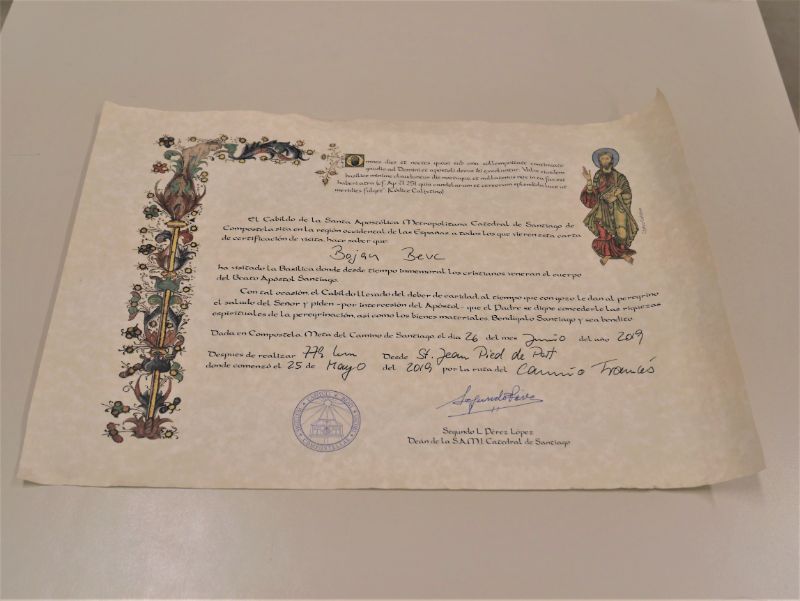 Omnes dies et noctes quasi sub una sollempnitate continuato
gaudio ad Domini et apostoli decus ibi excoluntur. Valve eiusdem
basilice minime clauduntur die noctuque, et
haberi atra (cf. Ap. 21,25), quia candelarum et cereorum splendida luce ut
meridies fulget". (Códice Calixtino)
El Cabildo de la Santa Apostólica Metropolitana Catedral de Santiago de
Compostela sita en la región occidental de las Españas, a todos los que vieren esta carta
de certificación de visita, hace saber que:
Bojan Bevc
ha visitado la Basílica donde desde tiempo inmemorial los cristianos veneran el cuerpo
del Beato Apóstol Santiago.
Con tal ocasión, el Cabildo llevado del deber de caridad, al tiempo que con gozo le dan al peregrino
el saludo del Señor y piden -por intercesión del Apóstol- que el Padre se digne concederle las riquezas
espirituales de la peregrinación, así como los bienes materiales. Bendígalo Santiago y sea bendito.
Dada en Compostela, Meta del Camino de Santiago, el día 26 del mes Junio del año 2019
Después de realizar 779 km Desde St. Jean Pied de Port
donde comenzó el 25 de Mayo del 2019 por la ruta del Camino Francés
Segundo L. Pérez López
Deán de la S.A.M.I. Catedral de Santiago